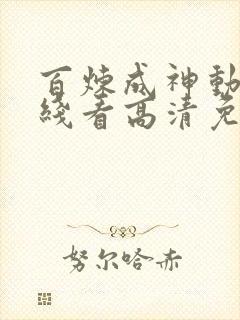 百炼成神動
綫看高清免
努尔哈赤